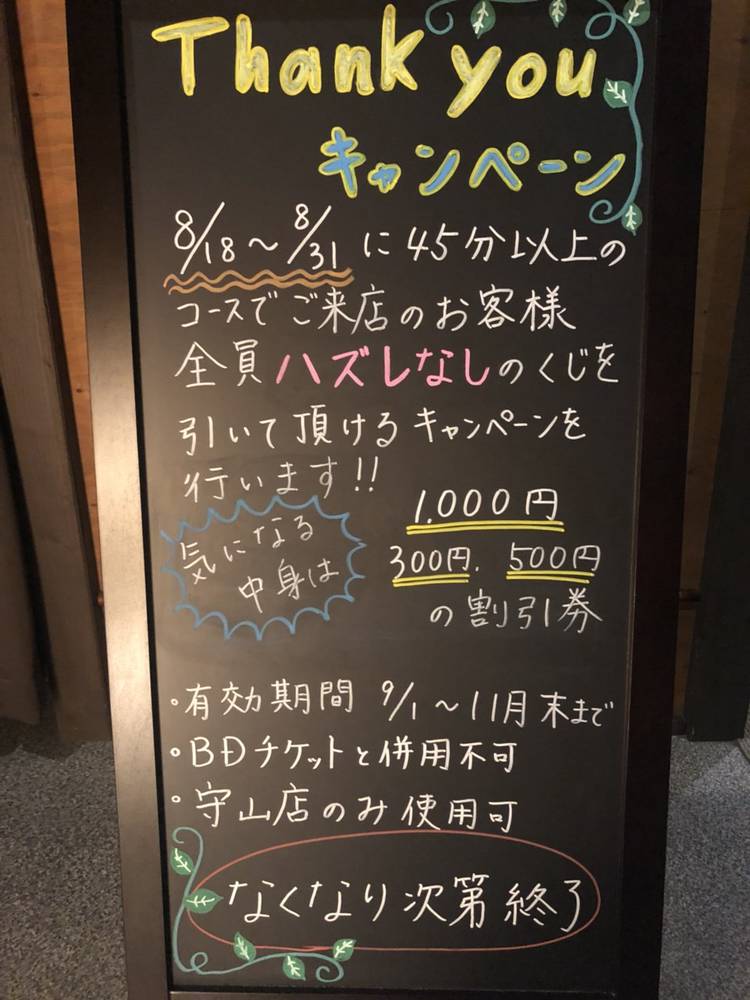 Thank you
キャンペーン
8/18〜8/31 に 45分以上の
コースでご来店のお客様
全員ハズレなしのくじを
引いて頂けるキャンペーンを
行います!!
気になる
中身は
1.000円
300円. 500円
の割引券
・有効期間 9/1〜11月末まで
・BDチケットと併用不可
・守山店のみ使用可
なくなり次第終了